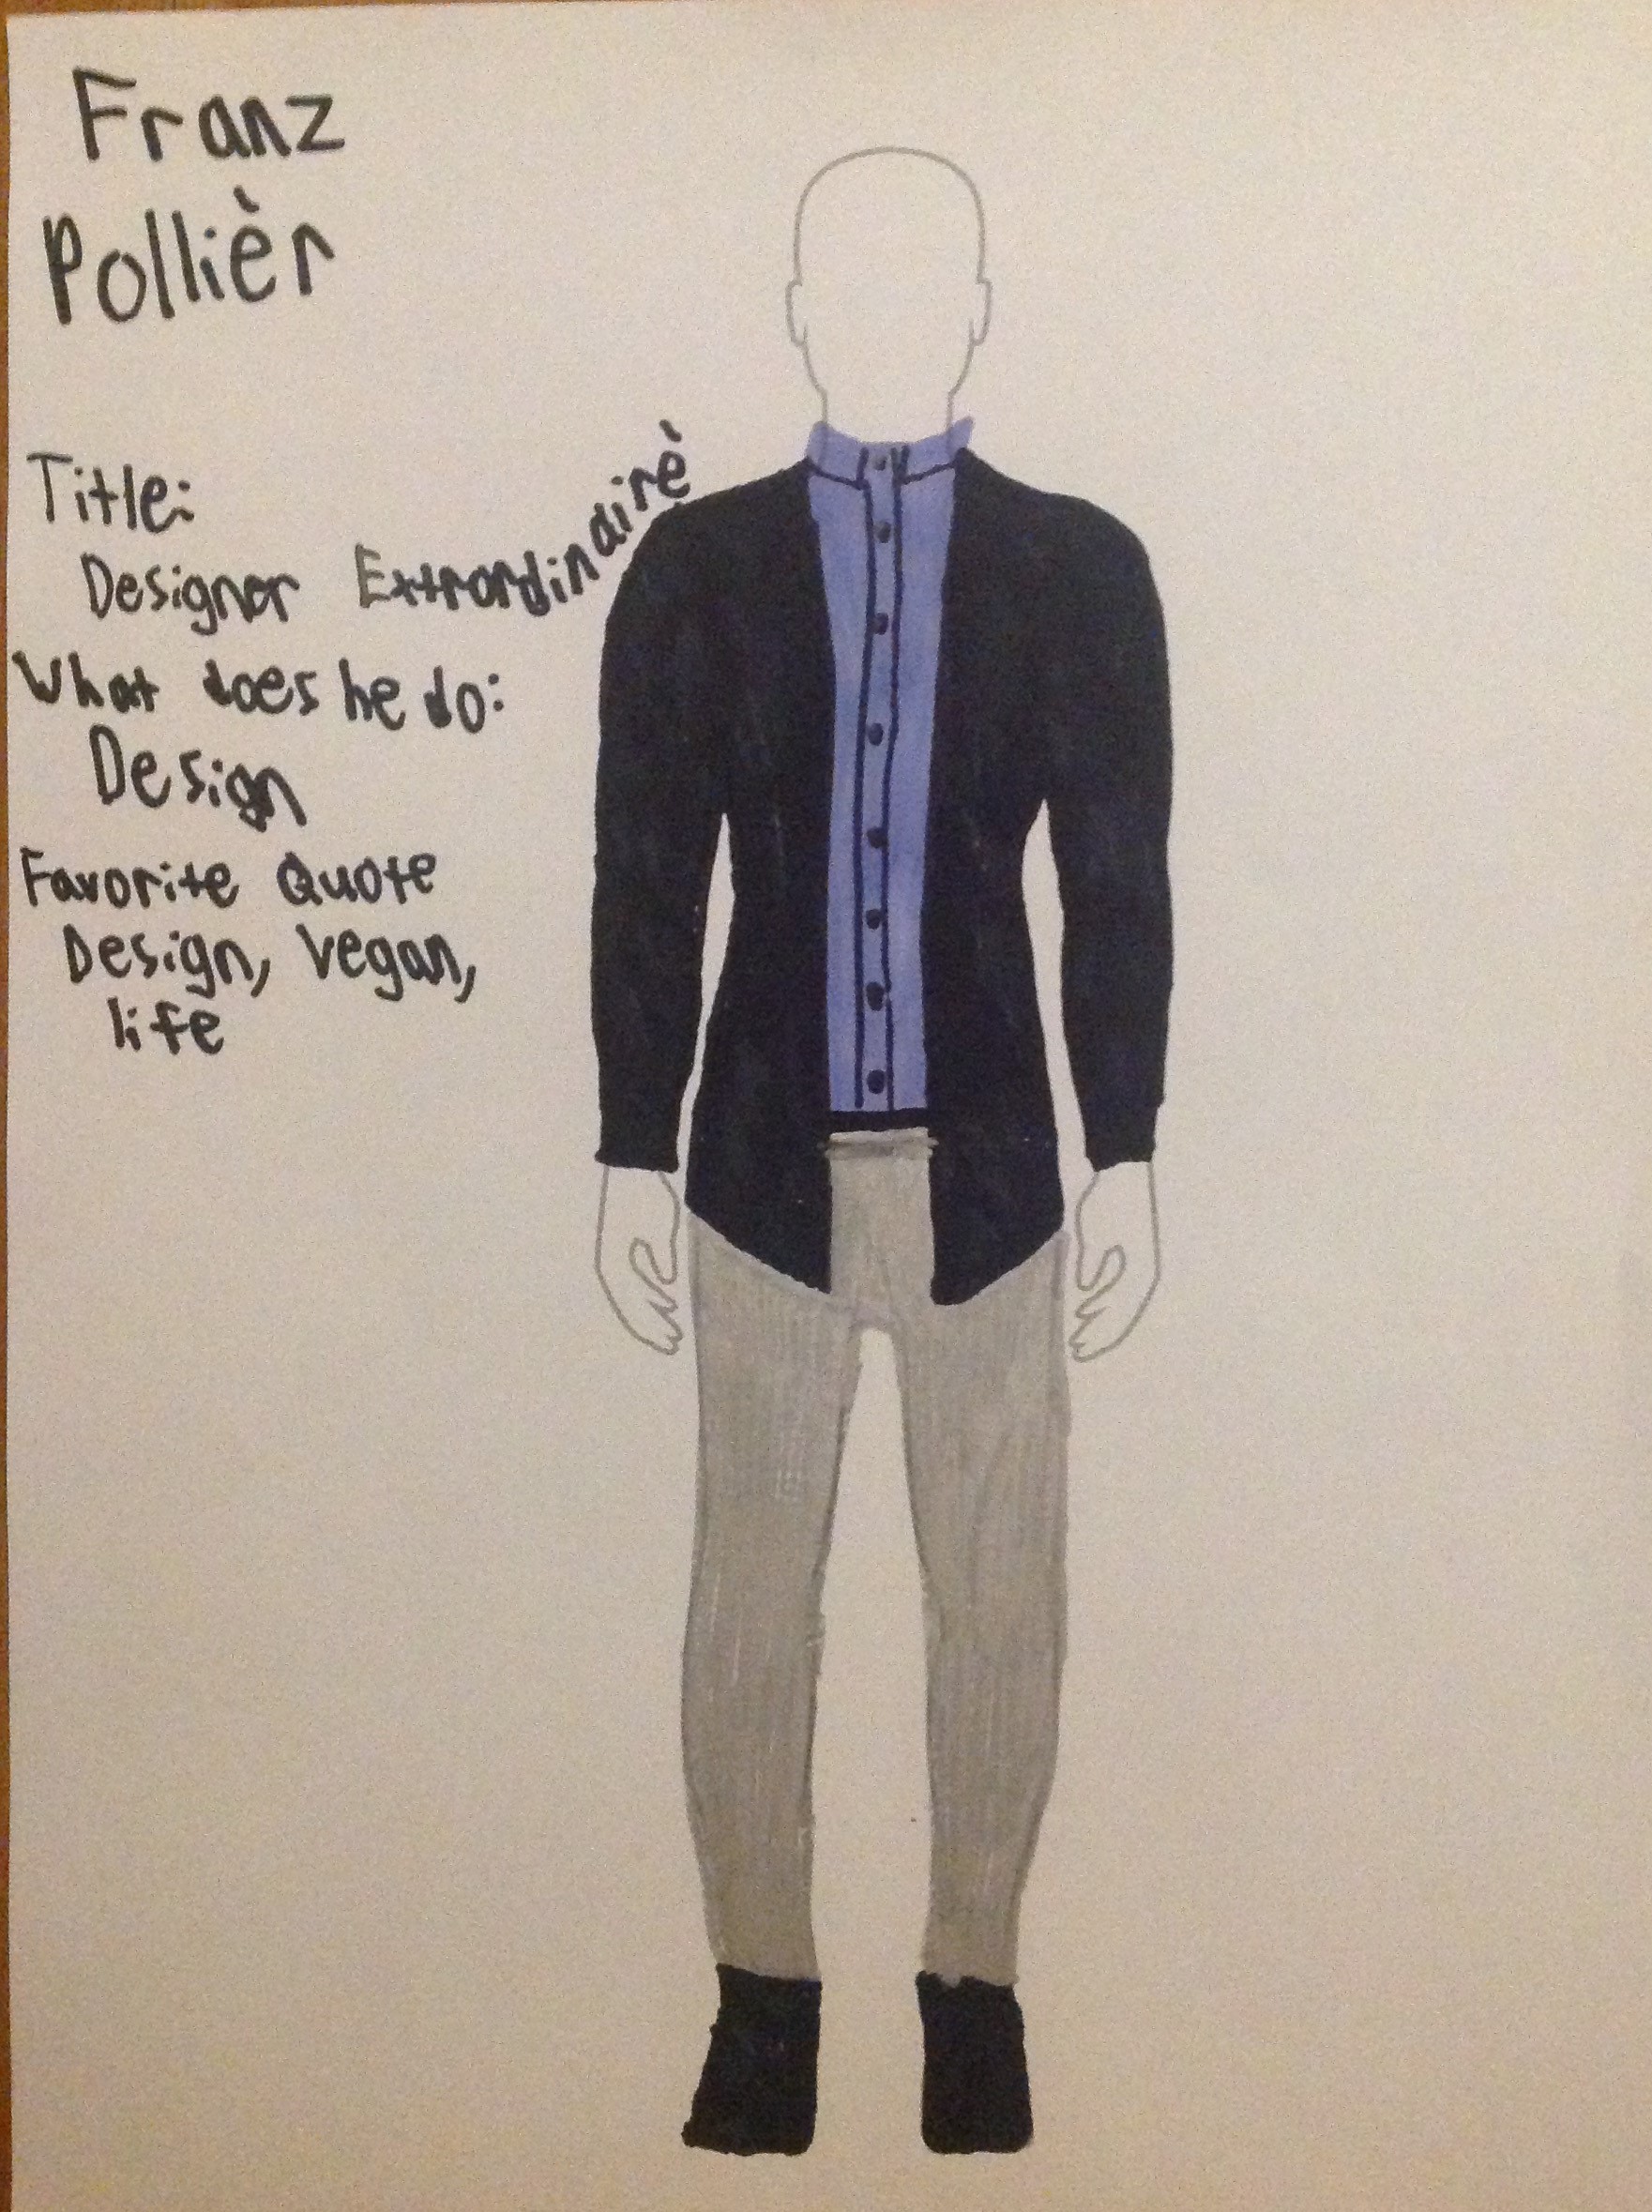 Franz
Pollièr
Title:
Designer Extrordinairè
What does he do:
Design
Favorite Quote
Design, Vegan,
life